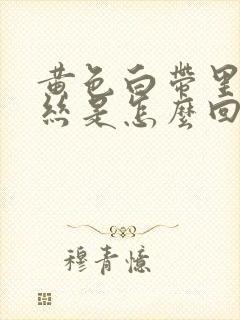 黄色白帶里
絲是怎麼回
穆青憶